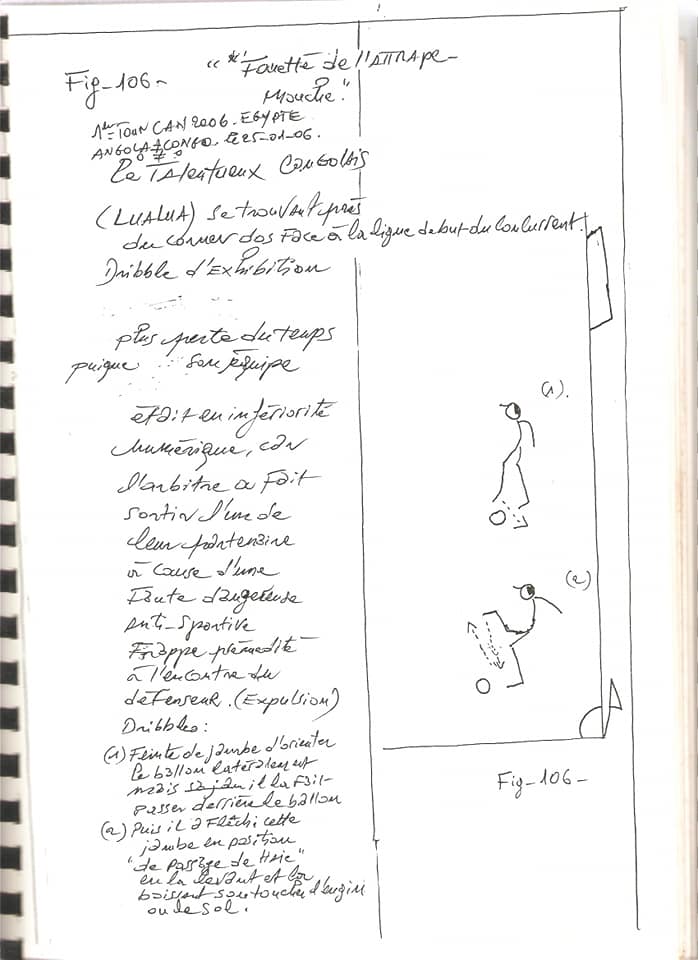 Fig-106-
"Fouetté de l'ATTRAPE-
Mouche."
1er Tour CAN 2006. EGYPTE
ANGOLA CONGO. le 25-01-06.
0 # 0
Le Talentueux Congolais
(LUALUA) se trouvant près
du corner dos Face à la ligue de but du Concurrent.
Dribble d'Exhibition
plus perte du temps
puique son équipe
était en infériorité
numérique, car
l'arbitre a Fait
sortir l'une de
leur partenaire
à cause d'une
Faute dangereuse
Anti-Sportive
Frappe prémedité
à l'encontre du
defenseur. (Expulsion)
Dribbles:
(1) Feinte de jambe d'orienter
le ballon lateralement
mais il la Fait-
passer derrière le ballon
(2) Puis il a Fléchi cette
jambe en position
"de passage de Haie"
en la levant et la
baissant sans toucher l'engin
ou le sol.
(1).
(2)
Fig-106-